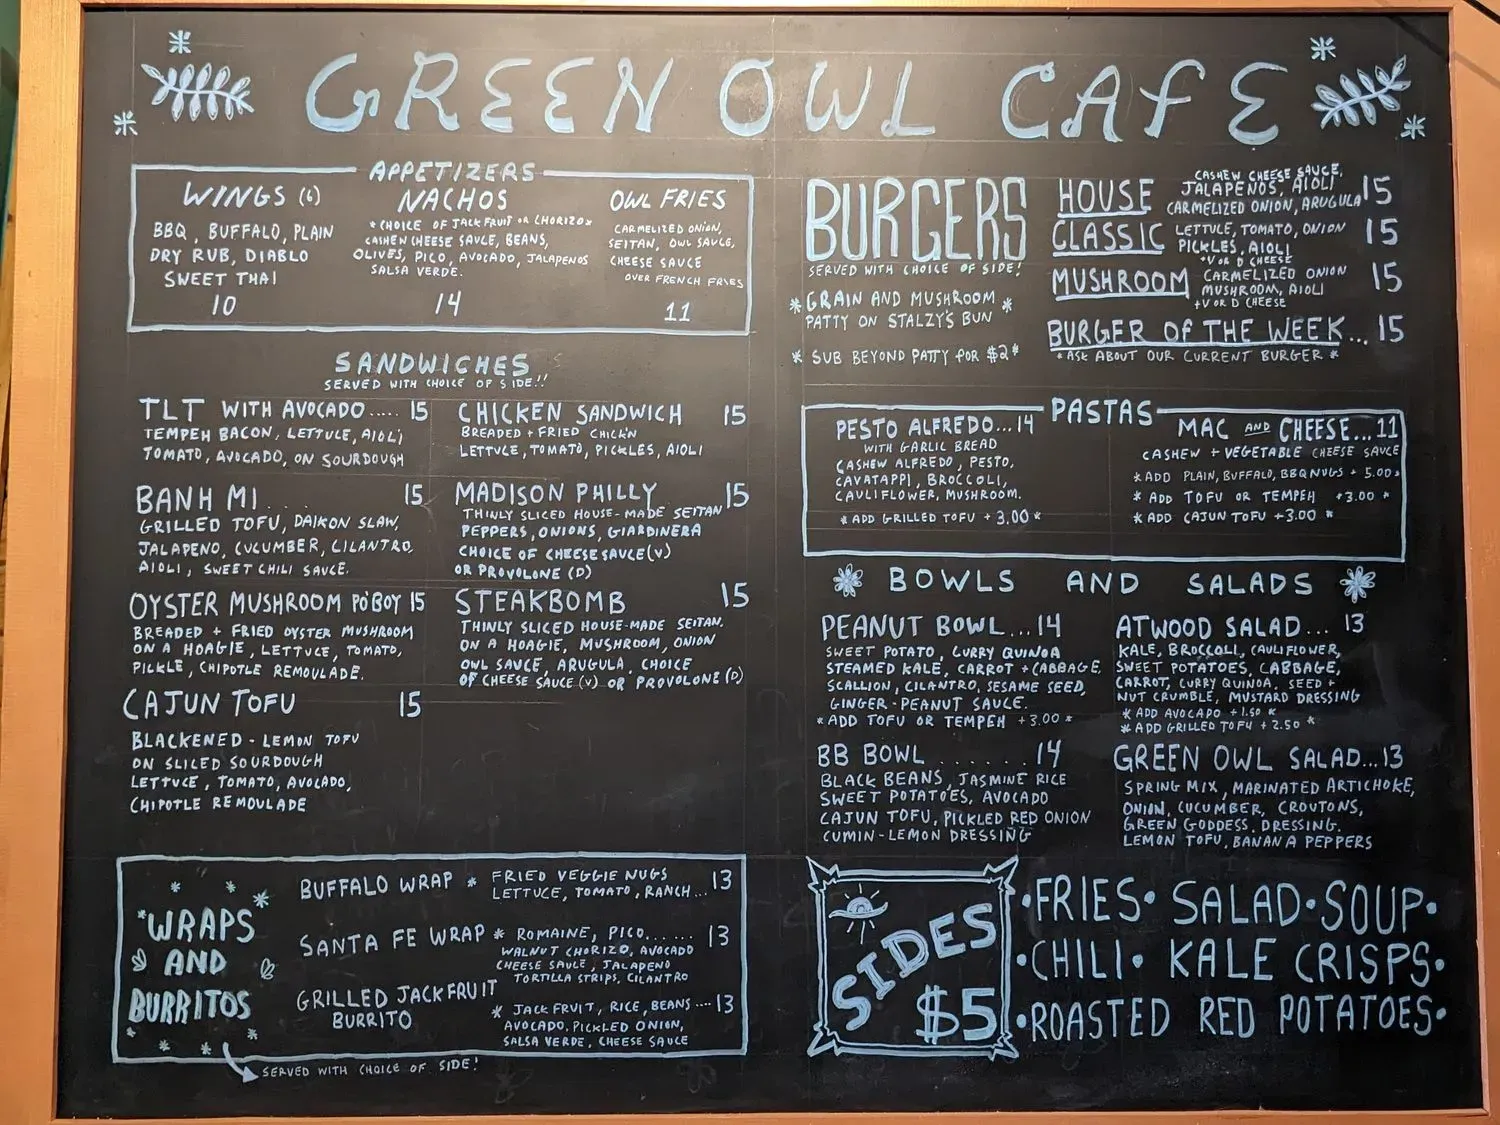 GREEN OWL CAFE
APPETIZERS
WINGS (6)
BBQ, BUFFALO, PLAIN
DRY RUB, DIABLO
SWEET THAI
10
NACHOS
*CHOICE OF JACKFRUIT OR CHORIZO*
CASHEW CHEESE SAUCE, BEANS,
OLIVES, PICO, AVOCADO, JALAPENOS
SALSA VERDE.
14
OWL FRIES
CARMELIZED ONION,
SEITAN, OWL SAUCE,
CHEESE SAUCE
OVER FRENCH FRIES
11
SANDWICHES
SERVED WITH CHOICE OF SIDE!!
TLT WITH AVOCADO..... 15
TEMPEH BACON, LETTUCE, AIOLI
TOMATO, AVOCADO, ON SOURDOUGH
BANH MI.... 15
GRILLED TOFU, DAIKON SLAW,
JALAPENO, CUCUMBER, CILANTRO,
AIOLI, SWEET CHILI SAUCE.
OYSTER MUSHROOM PO'BOY 15
BREADED + FRIED OYSTER MUSHROOM
ON A HOAGIE, LETTUCE, TOMATO,
PICKLE, CHIPOTLE REMOULADE.
CAJUN TOFU 15
BLACKENED - LEMON TOFU
ON SLICED SOURDOUGH
LETTUCE, TOMATO, AVOCADO,
CHIPOTLE REMOULADE
CHICKEN SANDWICH 15
BREADED + FRIED CHICK'N
LETTUCE, TOMATO, PICKLES, AIOLI
MADISON PHILLY 15
THINLY SLICED HOUSE-MADE SEITAN
PEPPERS, ONIONS, GIARDINERA
CHOICE OF CHEESE SAUCE (V)
OR PROVOLONE (D)
STEAKBOMB 15
THINLY SLICED HOUSE-MADE SEITAN.
ON A HOAGIE, MUSHROOM, ONION
OWL SAUCE, ARUGULA, CHOICE
OF CHEESE SAUCE (V) OR PROVOLONE (D)
WRAPS
AND
BURRITOS
BUFFALO WRAP * FRIED VEGGIE NUGS
LETTUCE, TOMATO, RANCH... 13
SANTA FE WRAP * ROMAINE, PICO...... 13
WALNUT CHORIZO, AVOCADO
CHEESE SAUCE, JALAPENO
TORTILLA STRIPS, CILANTRO
GRILLED JACKFRUIT
BURRITO
* JACKFRUIT, RICE, BEANS .... 13
AVOCADO, PICKLED ONION,
SALSA VERDE, CHEESE SAUCE
SERVED WITH CHOICE OF SIDE!
BURGERS
SERVED WITH CHOICE OF SIDE!
* GRAIN AND MUSHROOM *
PATTY ON STALZY'S BUN
* SUB BEYOND PATTY FOR $2 *
HOUSE CASHEW CHEESE SAUCE,
JALAPENOS, AIOLI
CARMELIZED ONION, ARUGULA 15
CLASSIC LETTUCE, TOMATO, ONION
PICKLES, AIOLI 15
*V OR D CHEESE
MUSHROOM CARMELIZED ONION
MUSHROOM, AIOLI 15
+V OR D CHEESE
BURGER OF THE WEEK... 15
*ASK ABOUT OUR CURRENT BURGER *
PASTAS
PESTO ALFREDO...14
WITH GARLIC BREAD
CASHEW ALFREDO, PESTO,
CAVATAPPI, BROCCOLI,
CAULIFLOWER, MUSHROOM.
* ADD GRILLED TOFU + 3.00 *
MAC AND CHEESE...11
CASHEW + VEGETABLE CHEESE SAUCE
* ADD PLAIN, BUFFALO, BBQ NUGS + 5.00 *
* ADD TOFU OR TEMPEH +3.00 *
* ADD CAJUN TOFU +3.00 *
BOWLS AND SALADS
PEANUT BOWL...14
SWEET POTATO, CURRY QUINOA
STEAMED KALE, CARROT + CABBAGE
SCALLION, CILANTRO, SESAME SEED,
GINGER-PEANUT SAUCE.
*ADD TOFU OR TEMPEH +3.00 *
BB BOWL ....... 14
BLACK BEANS, JASMINE RICE
SWEET POTATOES, AVOCADO
CAJUN TOFU, PICKLED RED ONION
CUMIN-LEMON DRESSING
ATWOOD SALAD... 13
KALE, BROCCOLI, CAULIFLOWER,
SWEET POTATOES, CABBAGE,
CARROT, CURRY QUINOA, SEED +
NUT CRUMBLE, MUSTARD DRESSING
* ADD AVOCADO +1.50 *
* ADD GRILLED TOFU + 2.50 *
GREEN OWL SALAD...13
SPRING MIX, MARINATED ARTICHOKE,
ONION, CUCUMBER, CROUTONS,
GREEN GODDESS DRESSING.
LEMON TOFU, BANANA PEPPERS
SIDES
$5
•FRIES• SALAD•SOUP•
•CHILI• KALE CRISPS•
•ROASTED RED POTATOES•